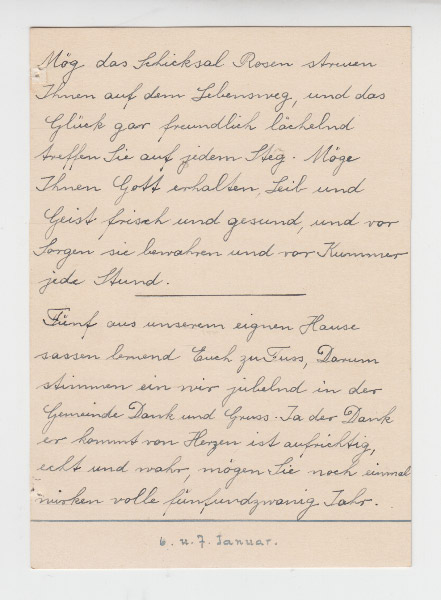 Mög das Schicksal Rosen streuen
Ihnen auf dem Lebensweg, und das
Glück gar freundlich lächelnd
treffen Sie auf jedem Steg. Möge
Ihnen Gott erhalten, Leib und
Geist frisch und gesund, und vor
Sorgen sie bewahren und vor Kummer
jede Stund.
Fünf aus unserem eignen Hause
sassen lernend Euch zu Fuss, Darum
stimmen ein wir jubelnd in der
Gemeinde Dank und Gruss. Ja der Dank
er kommt von Herzen ist aufrichtig,
echt und wahr, mögen Sie noch einmal
wirken volle fünfundzwanig Jahr.
6. u. 7. Januar.